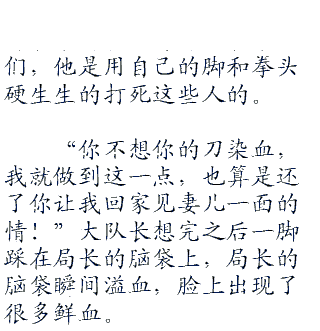 们，他是用自己的脚和拳头
硬生生的打死这些人的。
“你不想你的刀染血，
我就做到这一点，也算是还
了你让我回家见妻儿一面的
情！”大队长想完之后一脚
踩在局长的脑袋上，局长的
脑袋瞬间溢血，脸上出现了
很多鲜血。